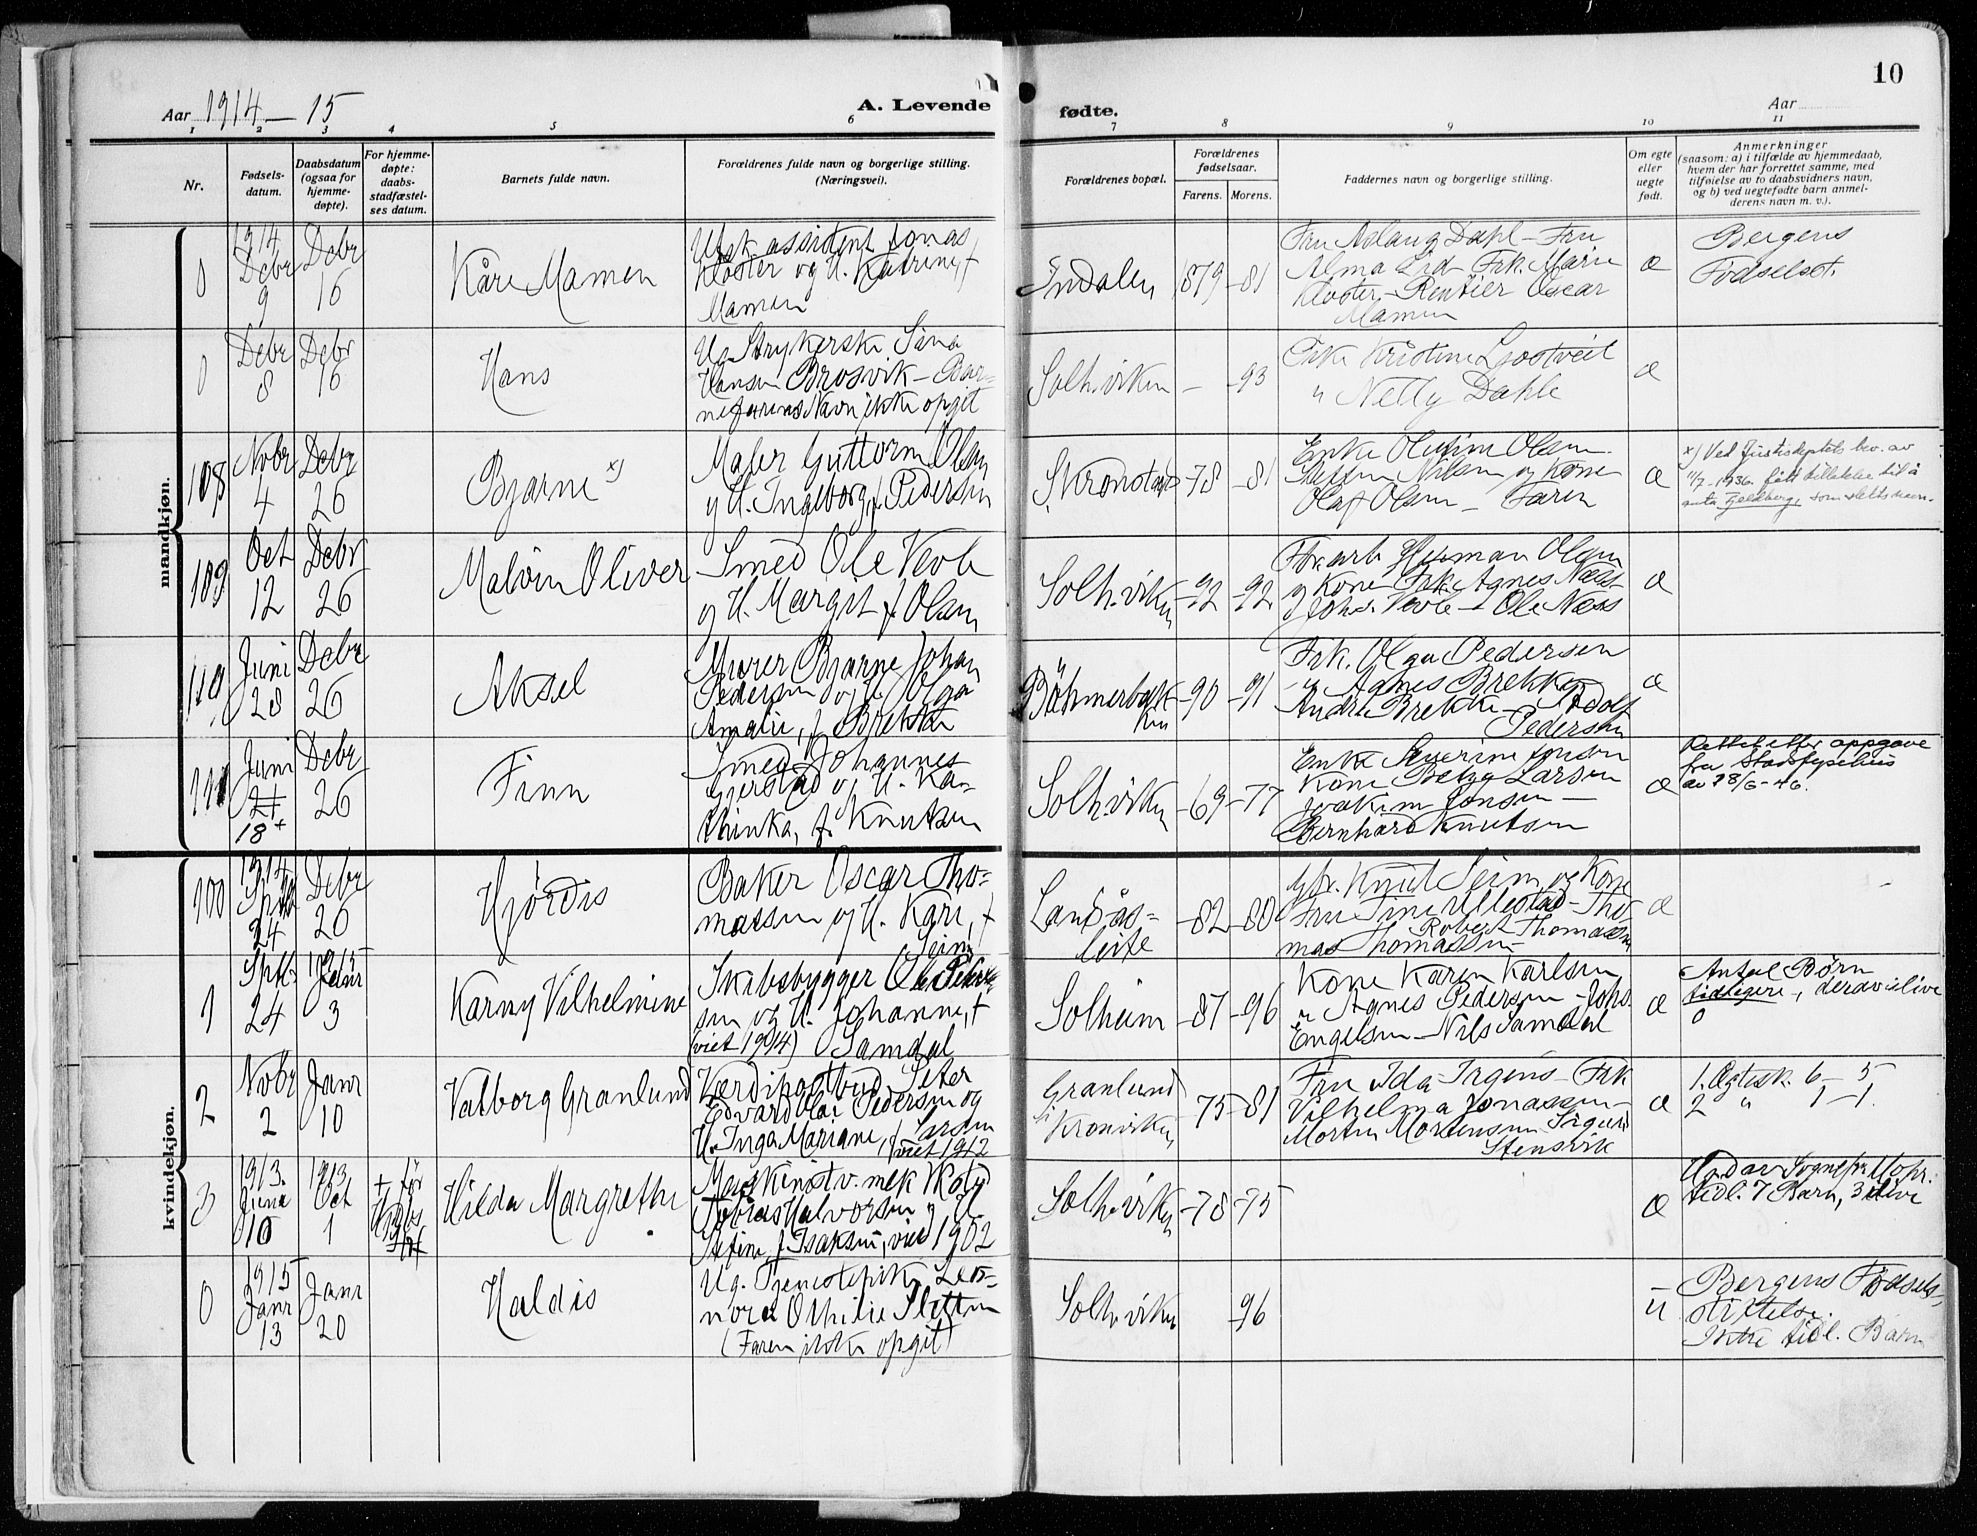 10
Aar 1914 — 15
A. Levende
fødte.
Aar
1 2 3 4 5 6 7 8 9 10 11
Nr.
Fødsels-
datum.
Daabsdatum
(ogsaa for
hjemme-
døpte).
For hjemme-
døpte:
daabs-
stadfæstel-
ses datum.
Barnets fulde navn.
Forældrenes fulde navn og borgerlige stilling.
(Næringsvei).
Forældrenes bopæl.
Forældrenes
fødselsaar.
Farens. Morens.
Faddernes navn og borgerlige stilling.
Om egte
eller
uegte
født.
Anmerkninger
(saasom: a) i tilfælde av hjemmedaab,
hvem der har forrettet samme, med
tilføielse av to daabsvidners navn,
og b) ved uegtefødte barn anmel-
derens navn m. v.).
mandkjøn.
0
1914
Debr
9
Debr
16
Kåre Mamen
assistent Jonas
Kloster og H. Katrine f
Mamen
Indalen
1879
-81
Fru Aslaug Dahl - Fru
Alma Lid - Frk. Marie
Kloster - Rentier Oscar
Mamen
æ
Bergens
Fødselsst.
0
Debr
8
Debr
16
Hans
Ug. Strykerske Sina
Hansen Brosvik - Bar-
nefarens Navn ikke opgit
Solh.viken
-
-93
Frk. Kristine
" Nelly Dahle
æ
108
Nobr
4
Debr
26
Bjarne x)
Maler Guttorm Olsen
og H. Ingeborg, f. Pedersen
Kronstad
-78
-81
Enke Olufine Olsen
Nilsen og Kone
Olaf Olsen - Faren
æ
x) Ved Justisdeptets bev. av
11/7-1936 fått tillatelse til å
anta Fjeldberg som slektsnavn.
109
Oct
12
Debr
26
Malvin Oliver
Smed Ole Vevle
og H. Margit f Olsen
Solh.viken
-92
-92
Herman Olsen
og Kone Frk. Agnes Næss
Johs. Vevle - Ole Næss
æ
110
Juni
28
Debr
26
Aksel
Murer Bjarne Johan
Pedersen og H. Olga
Amalie, f Brekke
Böhmerbakk
ken
-90
-91
Frk. Olga Pedersen
" Agnes Brekke
André Brekke - Adolf
Pedersen
æ
111
Juni
21
18+
Debr
26
Finn
Smed Johannes
Gjerstad og H. Ka-
thinka, f. Knutsen
Solh.viken
-69
-77
Enke Severine Jonsen
Kone Larsen
Joakim Jonsen -
Bernhard Knutsen
æ
Rettet etter oppgave
fra Stadfysikus
av 28/6-46.
kvindekjøn.
100
1914
24
Debr
26
Hjördis
Baker Oscar Tho-
massen og H. Kari, f
Seim
Landås-
leite
-82
-80
Knut Seim og Kone
Fru Tine Ullestad - Tho-
Robert Thomassen
mas Thomassen -
æ
1
Sptb.
24
1915
Janr
3
Karny Vilhelmine
Skibsbygger Ole Peder-
sen og H. Johanne, f
(viet 1914) Samdal
Solheim
-87
-96
Kone Karen Karlsen
" Agnes Pedersen - Johs.
Engelsen - Nils Samdal
æ
Antal Børn
tidligere, derav ilive
0
2
Nobr
2
Janr
10
Valborg Granlund
Værdipostbud Peter
Edvard Pedersen og
H. Inga Mariane, f Larsen
viet 1912
Granlund
Kronviken
-75
-81
Fru Ida Irgens - Frk
Vilhelma Jonassen -
Morten Mortensen Sigurd
Stensvik
æ
1. Ægtesk. 6 - 5
2 " 1 - 1.
3
1913.
Juni
10
1913
Oct
1
Hilda Margrethe
Maskinist v. mek Verksted
Tobias Halvorsen og H
Stefine f. Isaksen, viet 1902
Solh.viken
-78
-75
æ
tidl. 7 Barn, 3 ilive
0
1915
Janr
13
Janr
20
Haldis
Ug. Tjenestepike Leo-
nora Othilie Sletten
(Faren ikke opgit)
Solh.viken
-96
u
Bergens Fødsels-
stiftelse.
Ikke tidl. Barn